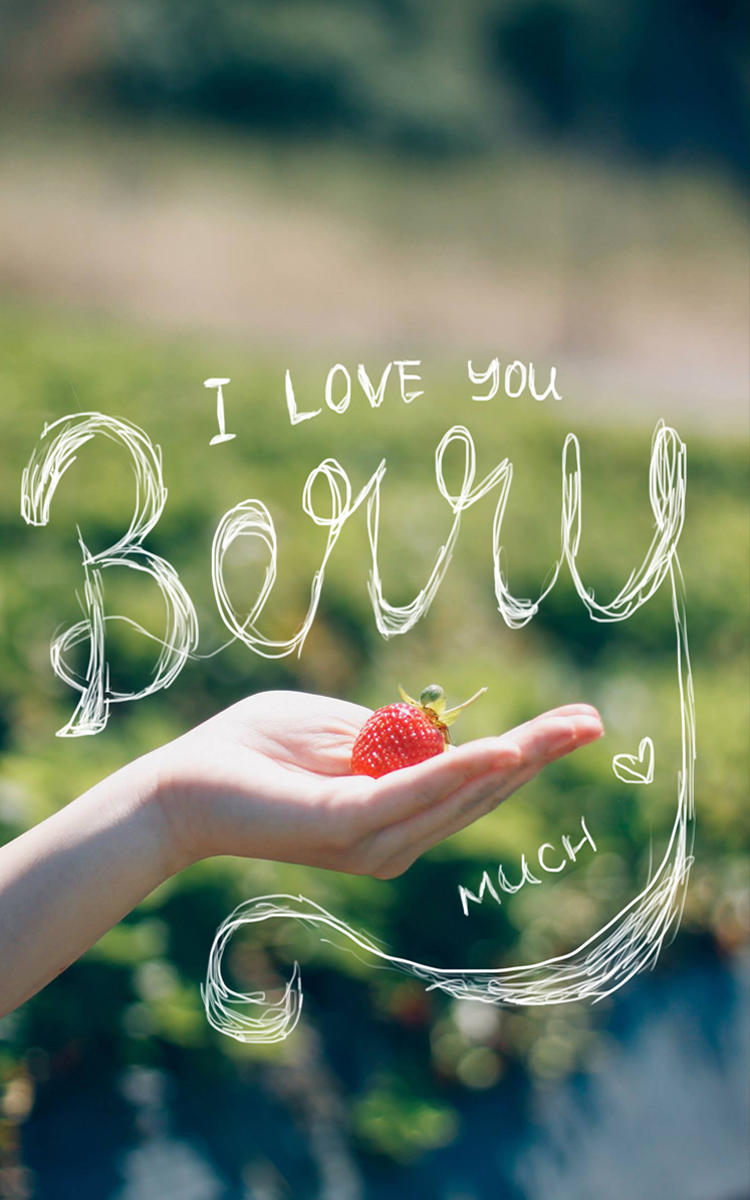 I LOVE YOU
Berry
MUCH